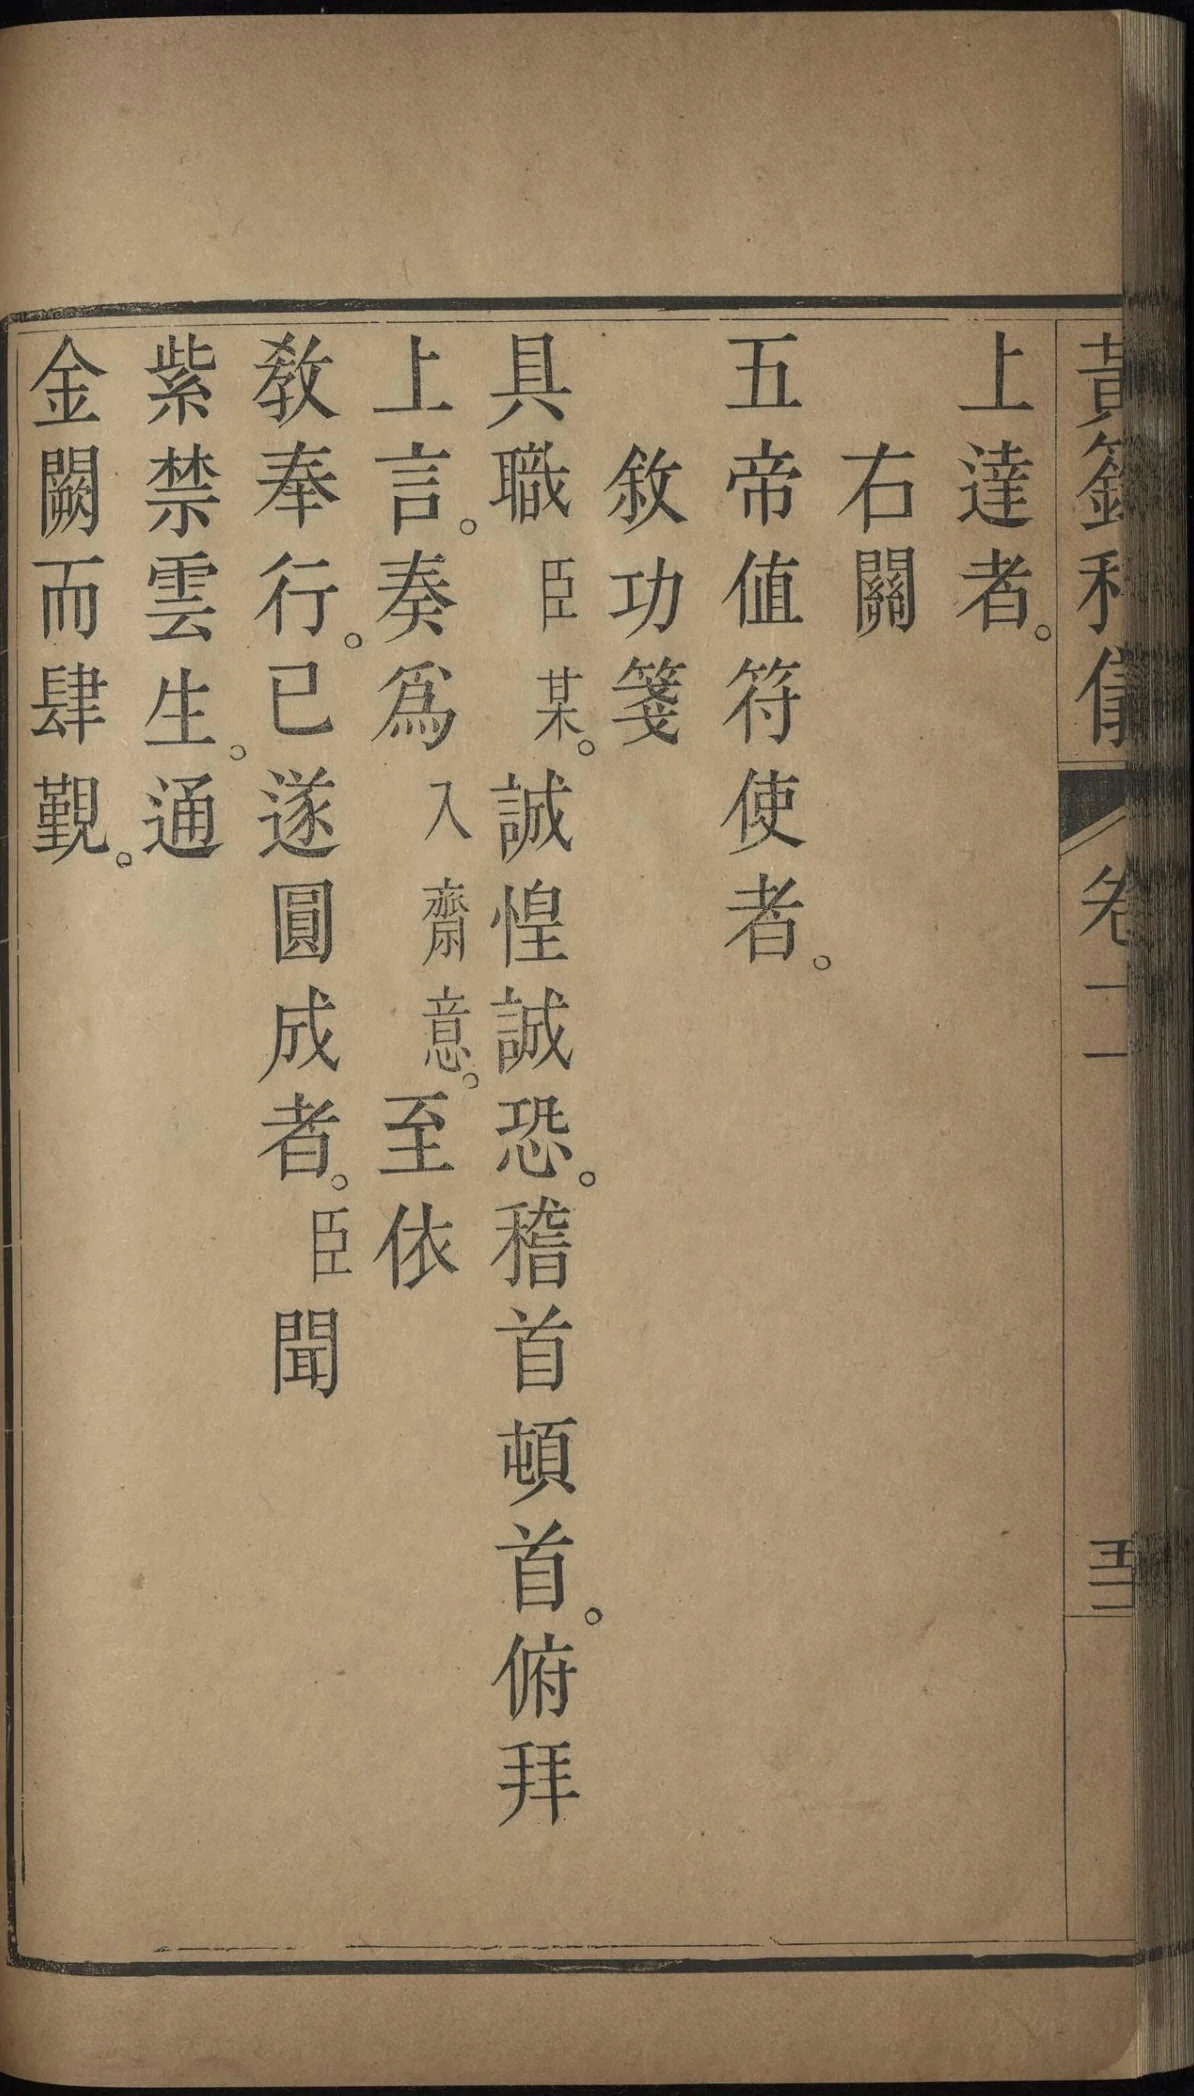 上達者。
右關
五帝值符使者。
敘功箋
具職臣某。誠惶誠恐。稽首頓首。俯拜
上言。奏爲入齋意。至依
敎奉行。已遂圓成者。臣聞
紫禁雲生。通
金闕而肆覲。